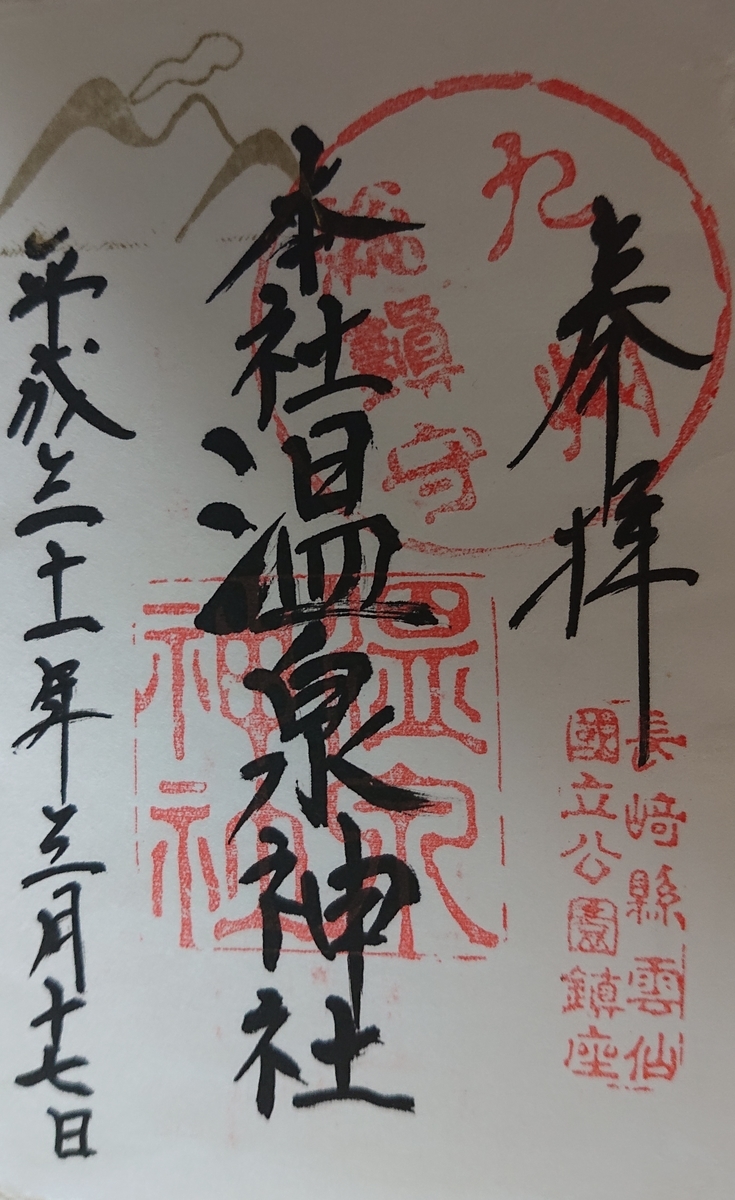 奉拝
長崎縣雲仙
國立公園鎮座
九州
総鎮守
本社温泉神社
温泉
神社
平成三十一年三月十七日